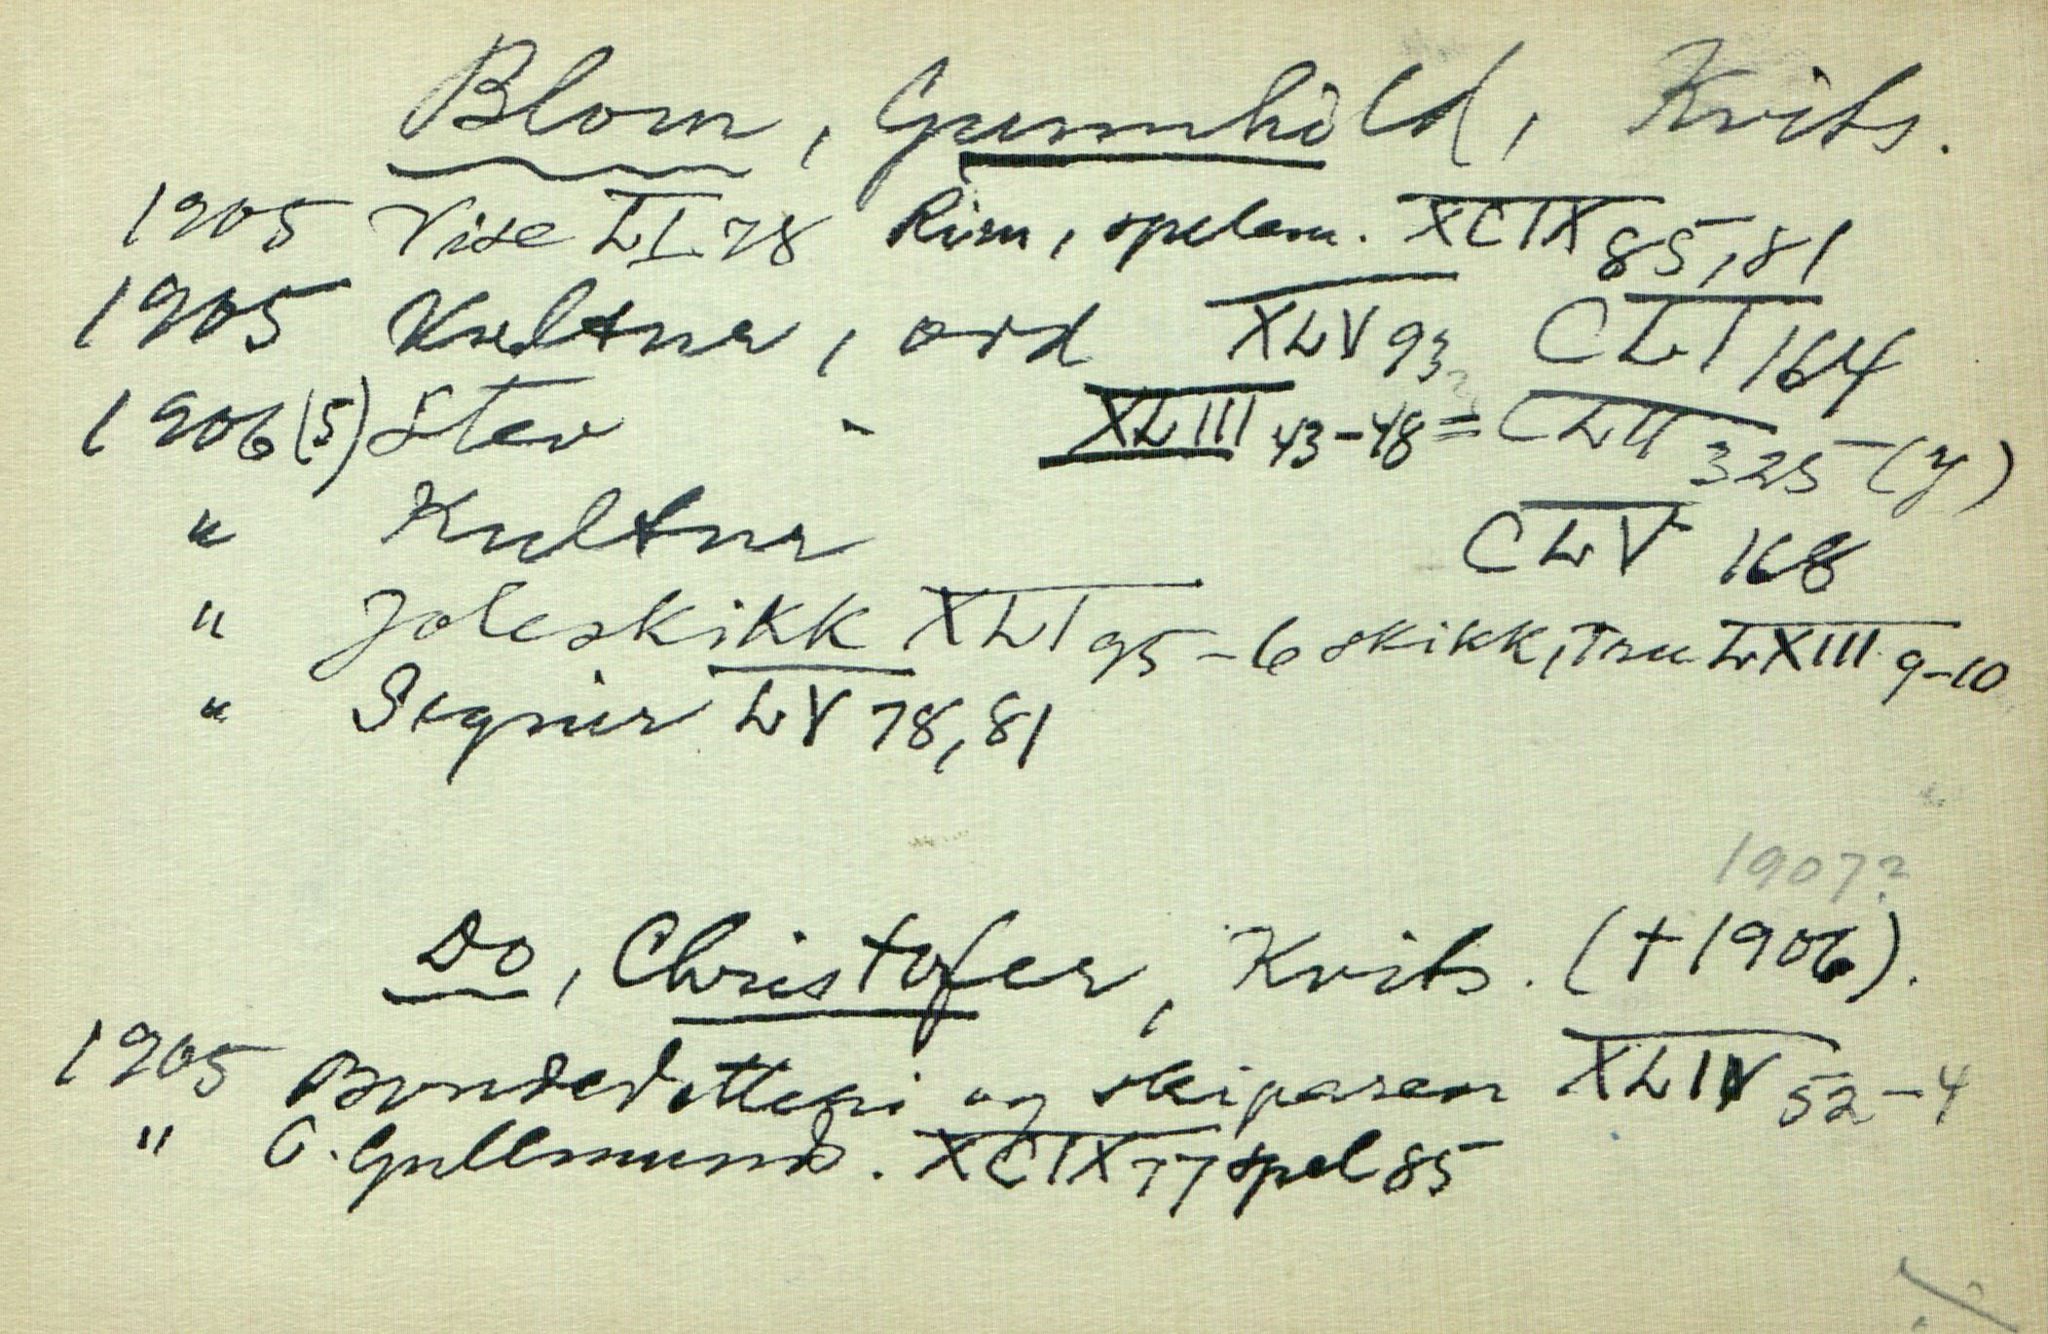 Blom, Gunnhild, Kvits.
1905 Vise LI 78 Rim, spelem. XCIX 85, 81
1905 Kultur, ord XLV 93 CLI 164
1906 (5) Stev - XLIII 43-48 = CLII 325-(7)
" Kultur CLV 168
" Joleskikk XLI 95-6 skikk, tru LXIII 9-10
" Segner LV 78, 81
1907?
Do, Christofer, Kvits. (†1906).
1905 og skiparen XLIV 52-4
" G. Gullmund. XCIX 77 spel 85